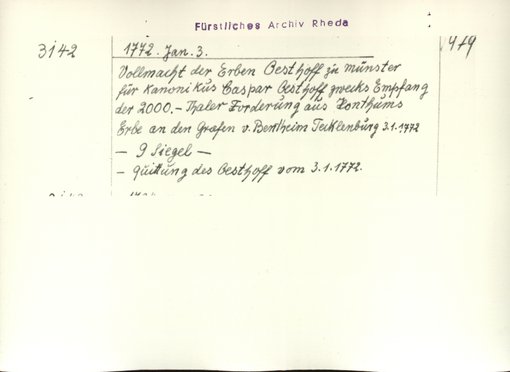 Fürstliches Archiv Rheda
3142 1772. Jan. 3. 479
Vollmacht der Erben Oesthoff zu Münster
für Kanonikus Caspar Oesthoff zwecks Empfang
der 2000.- Thaler Forderung aus Honthums
Erbe an den Grafen v. Bentheim Tecklenburg 3.1.1772
— 9 Siegel —
- Quittung des Oesthoff vom 3.1.1772.